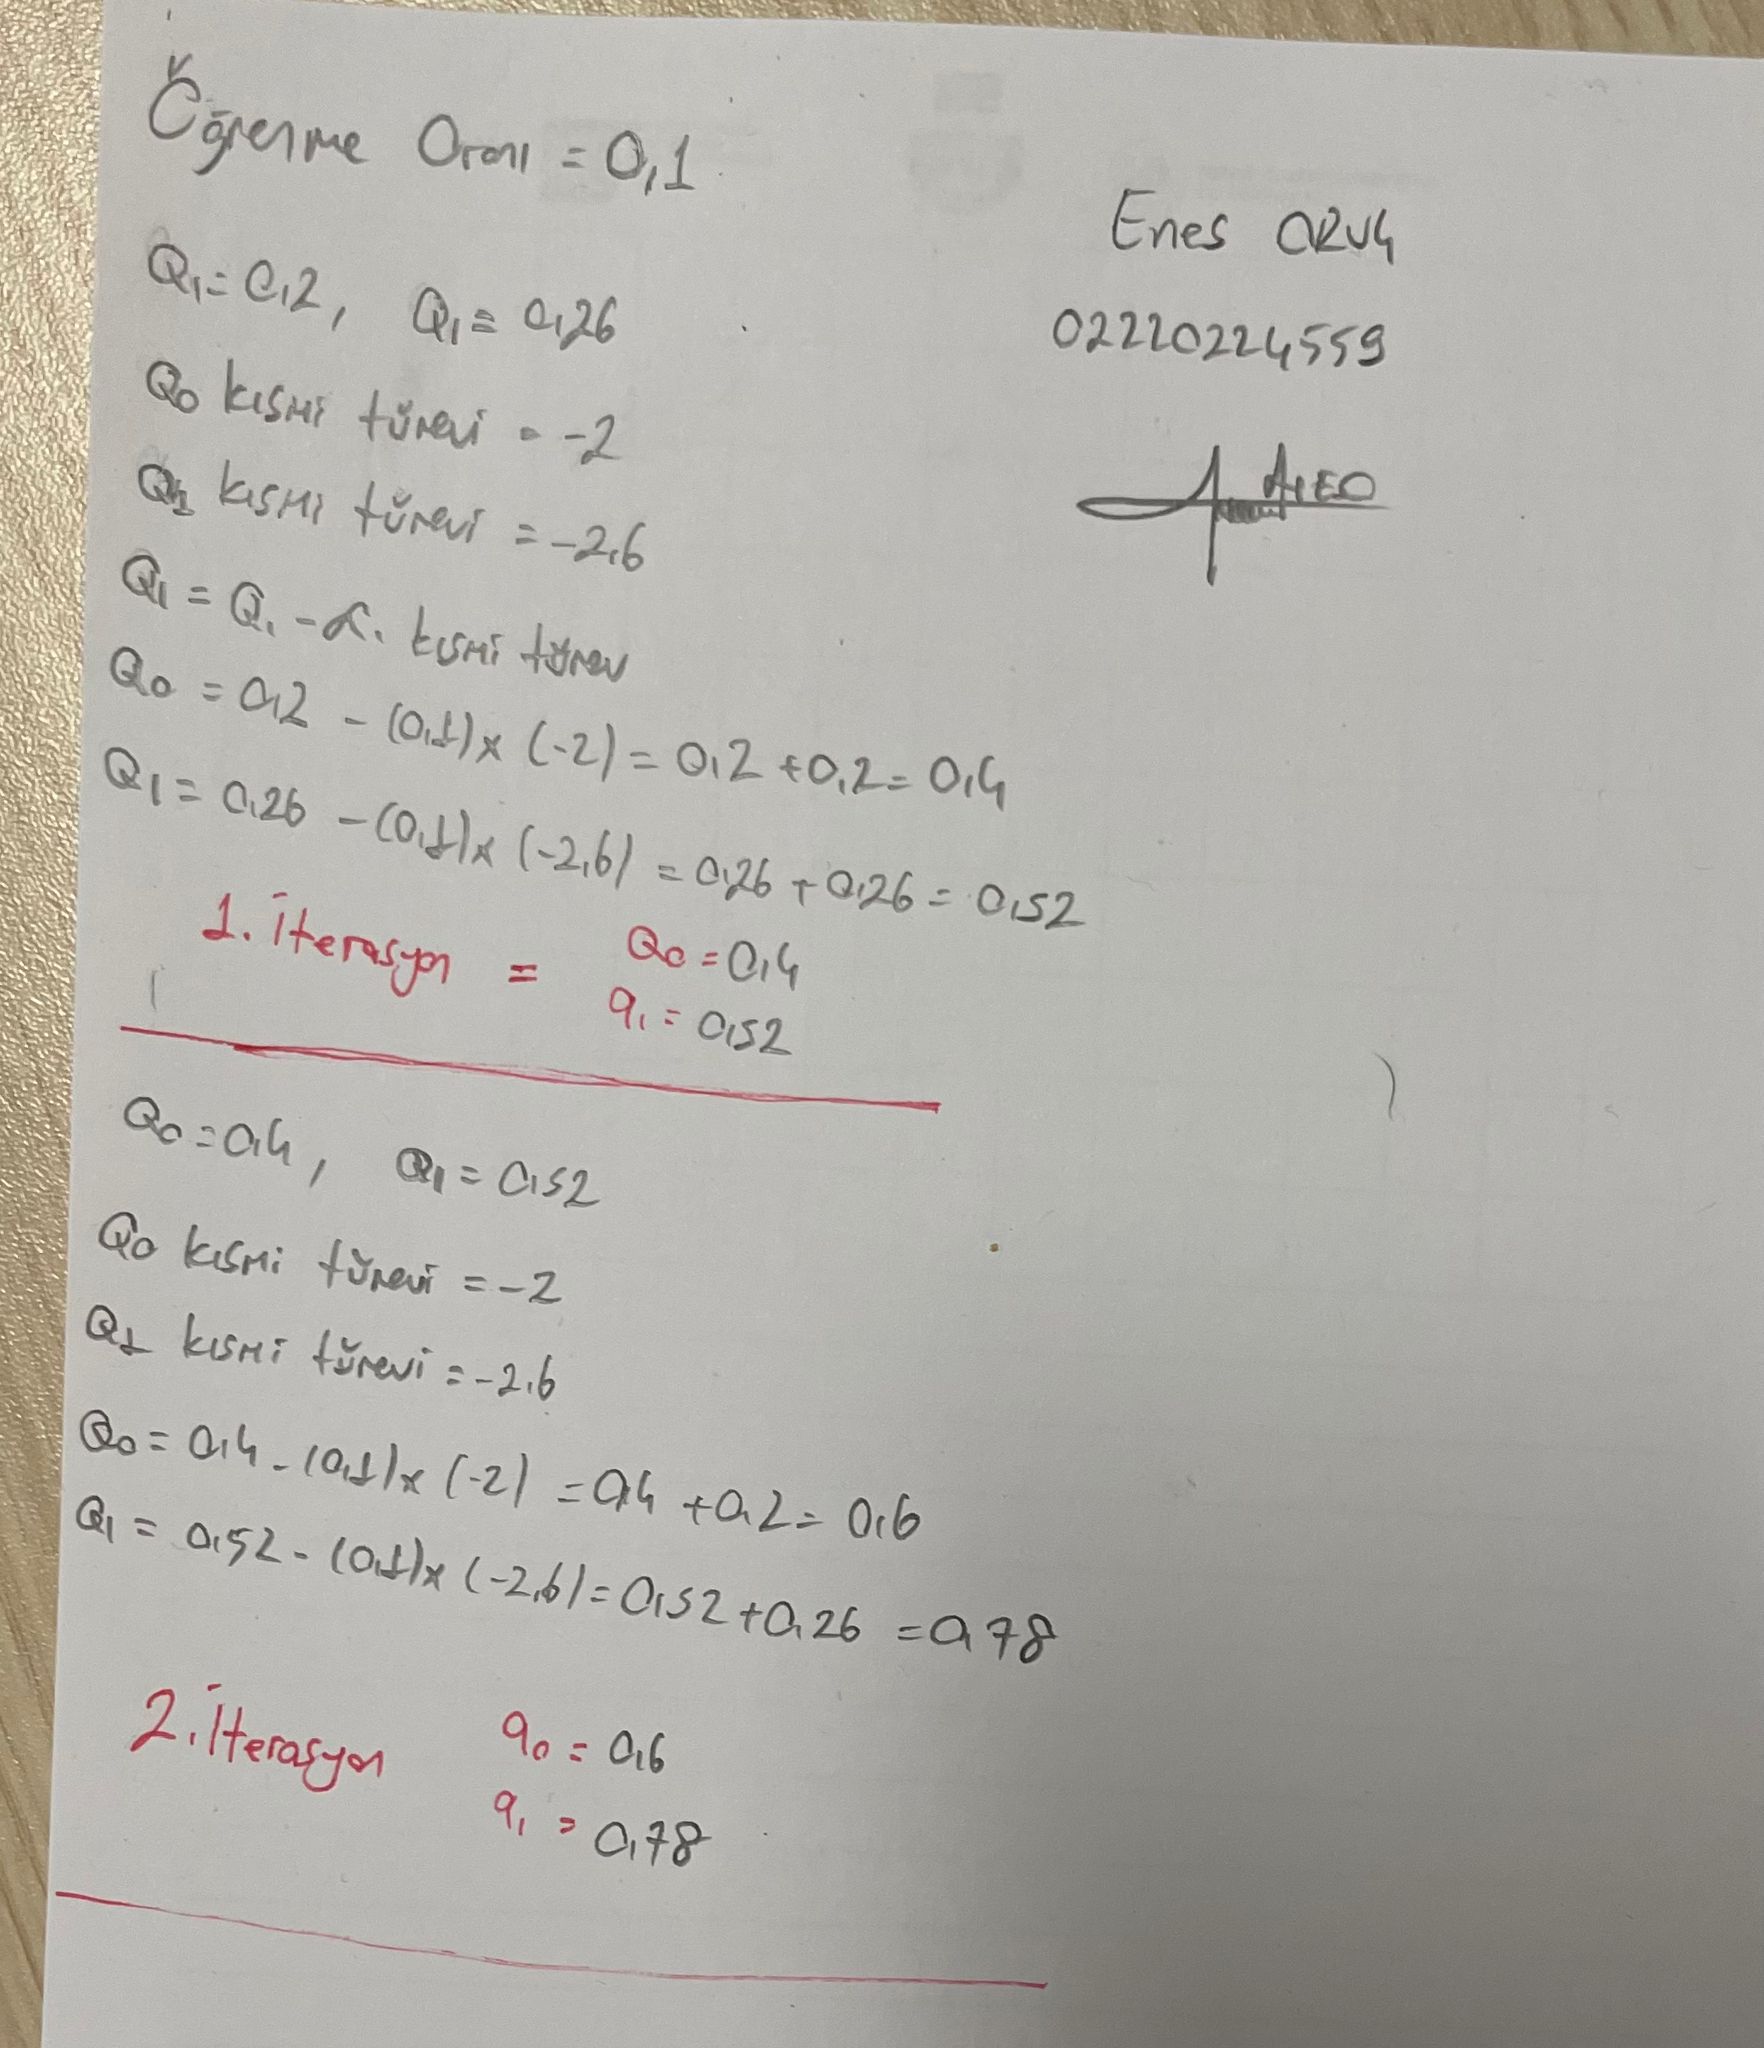 Öğrenme Oranı = 0,1
Enes ORUÇ
02220224559
Q1 = 0,2, Q1 = 0,26
Q0 kısmi türevi = -2
Q1 kısmi türevi = -2,6
Q1 = Q1 - α. kısmi türev
Q0 = 0,2 - (0,1) x (-2) = 0,2 + 0,2 = 0,4
Q1 = 0,26 - (0,1) x (-2,6) = 0,26 + 0,26 = 0,52
1. iterasyon = Q0 = 0,4
q1 = 0,52
Q0 = 0,4, Q1 = 0,52
Q0 kısmi türevi = -2
Q1 kısmi türevi = -2,6
Q0 = 0,4 - (0,1) x (-2) = 0,4 + 0,2 = 0,6
Q1 = 0,52 - (0,1) x (-2,6) = 0,52 + 0,26 = 0,78
2. iterasyon q0 = 0,6
q1 = 0,78